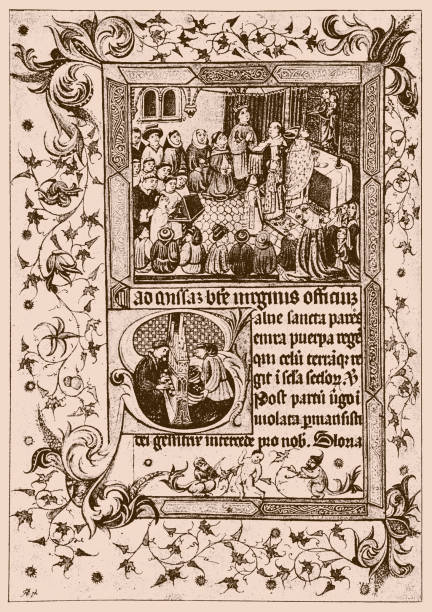 ad missaz bte virginis officiuz
alue sancta pares
enixa puerpa rege
qui celu terraqz re
git i scla seclor V
Post partu v'go i
uiolata pmansisti
dei genitrix intercede pro nob. Gloria